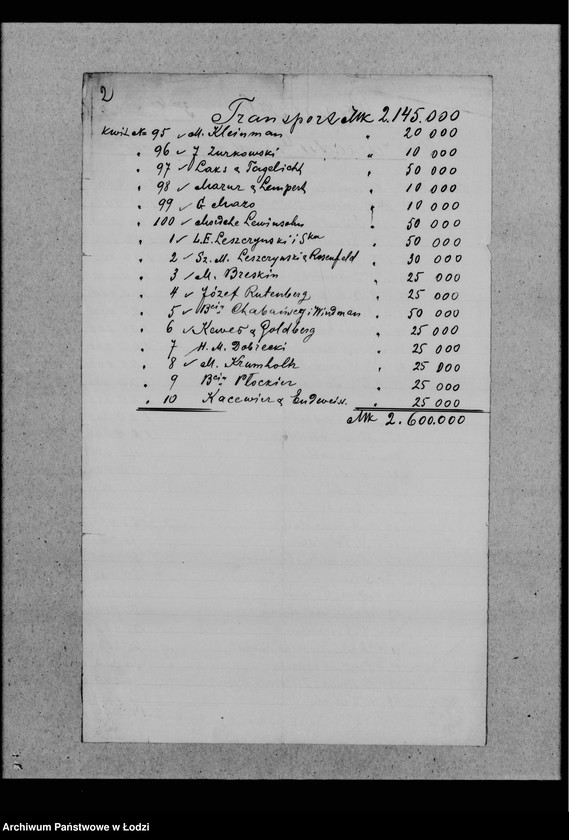 2
Transport Mk 2.145.000
Kwit № 95 ✓ M. Kleinman " 20 000
" 96 ✓ J Zurkowski " 10 000
" 97 ✓ Laks & Tagelicht " 50 000
" 98 ✓ Mazur & Lempert " 10 000
" 99 ✓ G Mazo " 10 000
" 100 ✓ Mosche Lewinsohn " 50 000
" 1 ✓ L.E. Leszczynski i Ska " 50 000
" 2 ✓ Sz. M. Leszczynski & Rosenfeld " 30 000
" 3 ✓ M. Breskin " 25 000
" 4 ✓ Józef Rutenberg " 25 000
" 5 ✓ Bcia Chabańscy i Windman " 50 000
" 6 ✓ & Goldberg " 25 000
" 7 H. M. Dobiecki " 25 000
" 8 ✓ M. Krumholtz " 25 000
" 9 Bcia Płockier " 25 000
" 10 Kacewicz & " 25 000
Mk 2.600.000
Archiwum Państwowe w Łodzi